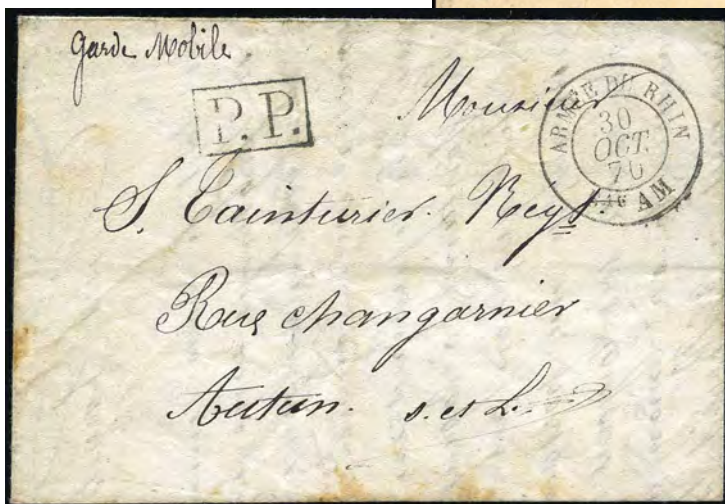 Garde Mobile
P.P.
ARMÉE DU RHIN
30
OCT.
70
AM
Monsieur
S. Tainturier Rey
Rue changarnier
Autun. s. et L.